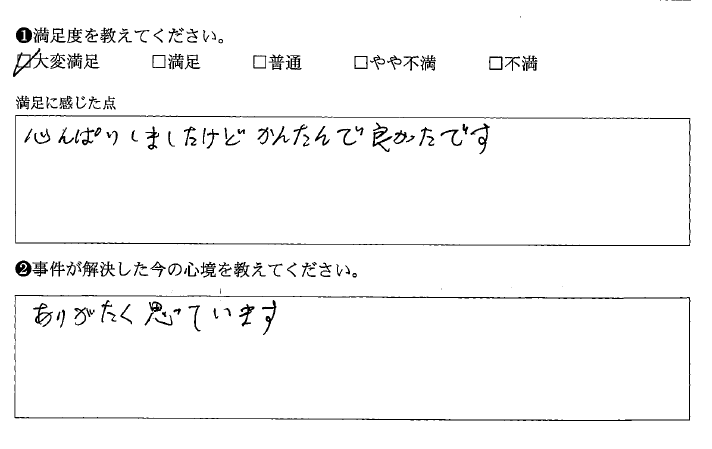 ❶満足度を教えてください。
☑大変満足 □満足 □普通 □やや不満 □不満
満足に感じた点
心んぱいしましたけど かんたんで良かったです
❷事件が解決した今の心境を教えてください。
ありがたく思っています